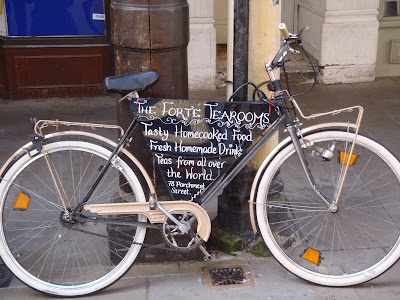 The Forté Tearooms
Tasty Homecooked Food
Fresh Homemade Drink
Teas from all over
the World
78 Parchment
Street.